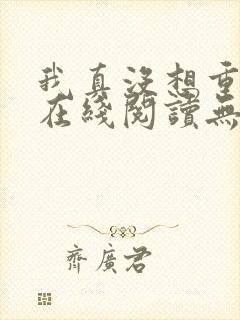 我真没想重
在綫閱讀無
齊廣君